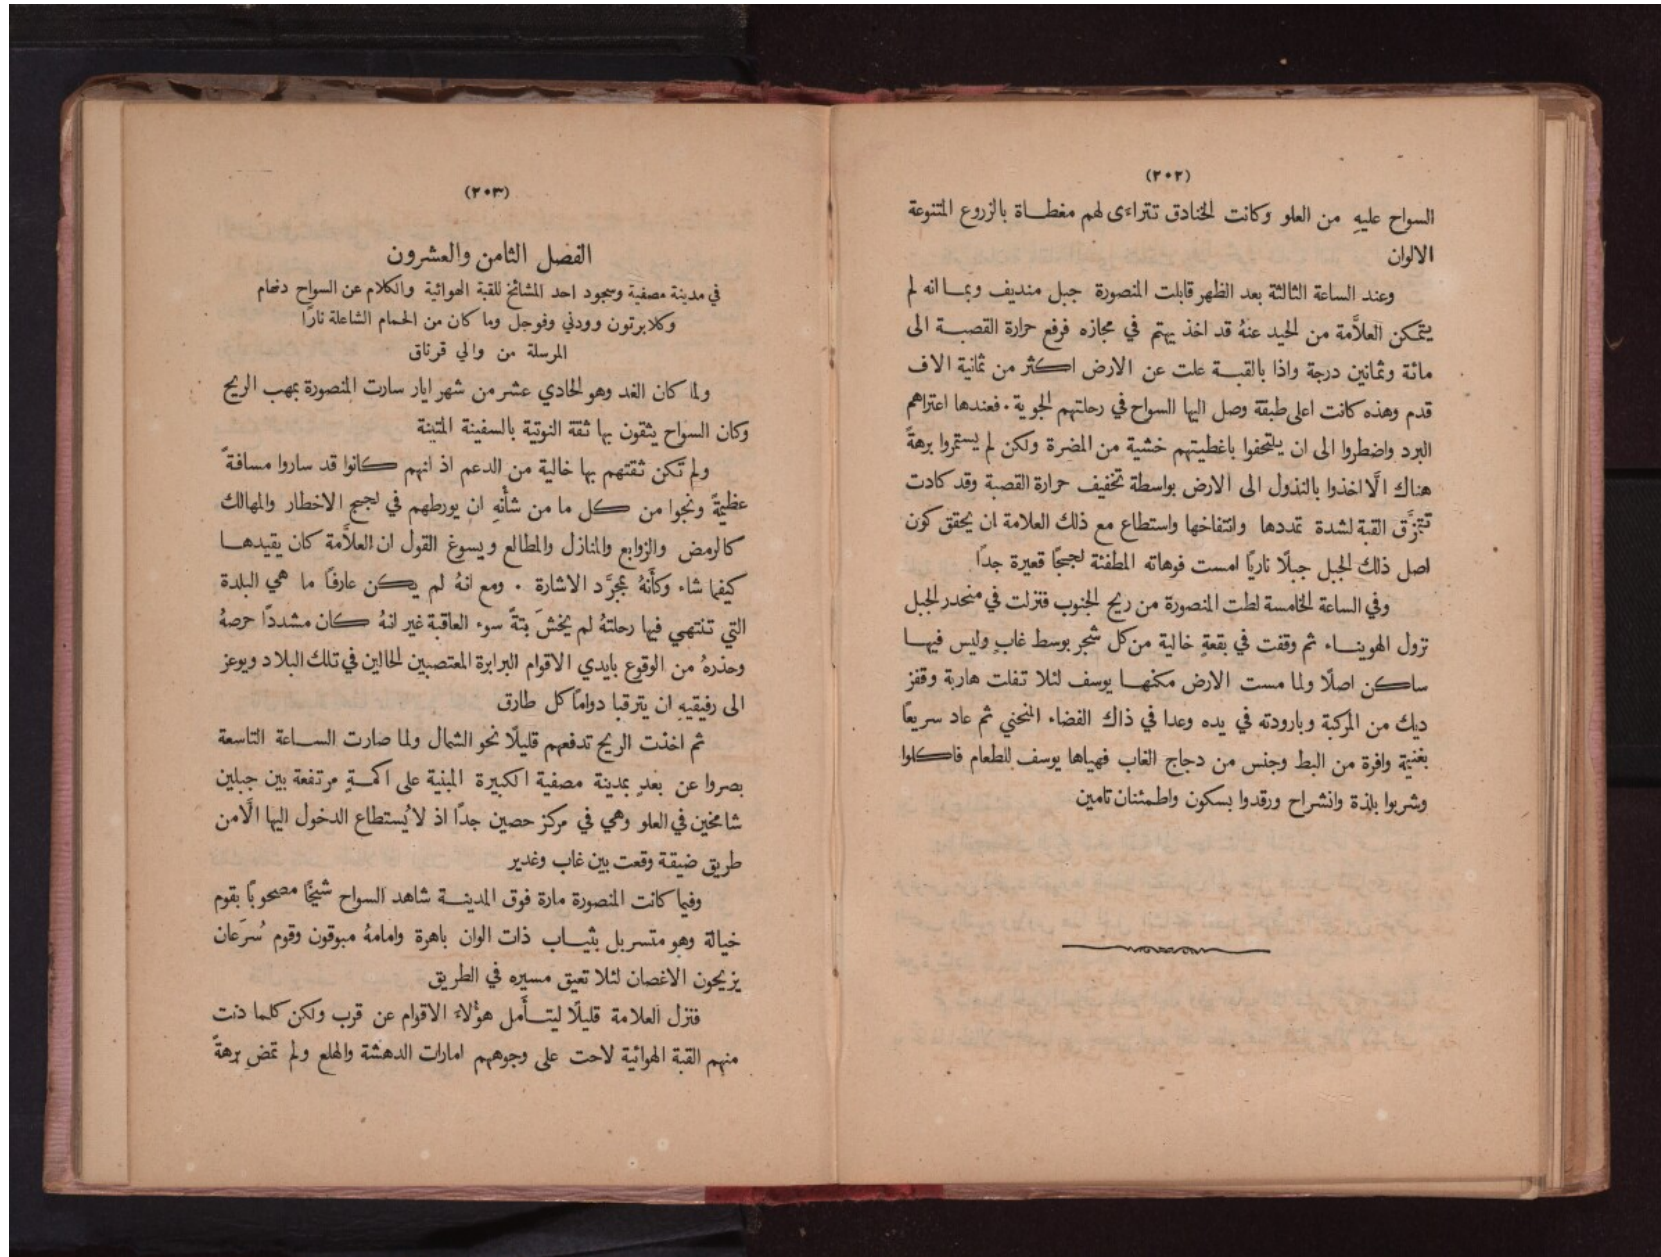 (٢٠٢)
السواح عليهِ من العلو وكانت الخنادق تتراءى لهم مغطاة بالزروع المتنوعة
الالوان
وعند الساعة الثالثة بعد الظهر قابلت المنصورة جبل منديف وبما انه لم
يتمكن العلاَّمة من الحيد عنهُ قد اخذ يهتم في مجازه فرفع حرارة القصبة الى
مائة وثمانين درجة واذا بالقبة علت عن الارض اكثر من ثمانية الاف
قدم وهذه كانت اعلى طبقة وصل اليها السواح في رحلتهم الجوية . فعندها اعتراهم
البرد واضطروا الى ان يلتحفوا باغطيتهم خشية من المضرة ولكن لم يستمروا برهةً
هناك الَّا اخذوا بالنذول الى الارض بواسطة تخفيف حرارة القصبة وقد كادت
تتمزَّق القبة لشدة تمددها وانتفاخها واستطاع مع ذلك العلامة ان يحقق كون
اصل ذلك الجبل جبلًا ناريًا امست فوهاته المطفئة لججًا قعيرة جدًا
وفي الساعة الخامسة لطت المنصورة من ريح الجنوب فنزلت في منحدر الجبل
نزول الهويناء ثم وقفت في بقعةٍ خالية من كل شجر بوسط غابٍ وليس فيها
ساكن اصلًا ولما مست الارض مكنها يوسف لئلا تفلت هاربة وقفز
ديك من المركبة وبارودته في يده وعدا في ذاك الفضاء المنحني ثم عاد سريعًا
بغنيمة وافرة من البط وجنس من دجاج الغاب فهياها يوسف للطعام فاكلوا
وشربوا بلذة وانشراح ورقدوا بسكون واطمئنان تامين
(٢٠٣)
الفصل الثامن والعشرون
في مدينة مصفية وسجود احد المشائخ للقبة الهوائية والكلام عن السواح دنهام
وكلابرتون وودني وفوجل وما كان من الحمام الشاعلة نارًا
المرسلة من والي قرناق
ولما كان الغد وهو الحادي عشر من شهر ايار سارت المنصورة بمهب الريح
وكان السواح يثقون بها ثقة النوتية بالسفينة المتينة
ولم تكن ثقتهم بها خالية من الدعم اذ انهم كانوا قد ساروا مسافةً
عظيمةً ونجوا من كل ما من شأنهِ ان يورطهم في لجج الاخطار والمهالك
كالرمض والزوابع والمنازل والمطالع ويسوغ القول ان العلاَّمة كان يقيدها
كيفما شاء وكأنهُ بمجرَّد الاشارة . ومع انهُ لم يكن عارفًا ما هي البلدة
التي تنتهي فيها رحلتهُ لم يخشَ بتةً سوء العاقبة غير انهُ كان مشددًا حرصهُ
وحذرهُ من الوقوع بايدي الاقوام البرابرة المعتصبين الحالين في تلك البلاد ويوعز
الى رفيقيهِ ان يترقبا دوامًا كل طارق
ثم اخذت الريح تدفعهم قليلًا نحو الشمال ولما صارت الساعة التاسعة
بصروا عن بعدٍ بمدينة مصفية الكبيرة المبنية على اكمةٍ مرتفعة بين جبلين
شامخين في العلو وهي في مركز حصين جدًا اذ لا يُستطاع الدخول اليها الَّا من
طريق ضيقة وقعت بين غاب وغدير
وفيما كانت المنصورة مارة فوق المدينة شاهد السواح شيخًا مصحوبًا بقوم
خيالة وهو متسربل بثياب ذات الوان باهرة وامامهُ مبوقون وقوم سُرَعان
يزيحون الاغصان لئلا تعيق مسيره في الطريق
فنزل العلامة قليلًا ليتأَمل هؤلاءِ الاقوام عن قرب ولكن كلما دنت
منهم القبة الهوائية لاحت على وجوههم امارات الدهشة والهلع ولم تمضِ برهةً